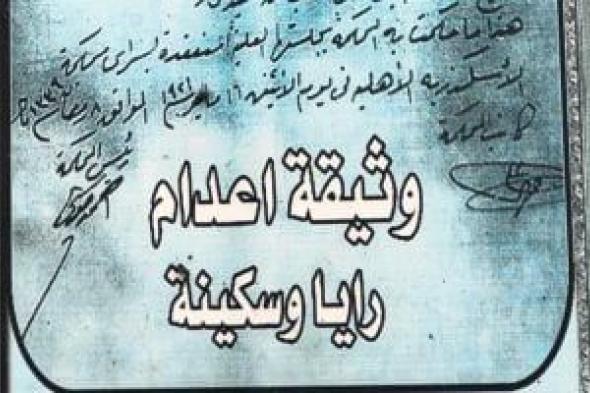 هذا ما حكمت به المحكمة بجلستها العلنية المنعقدة بسراى محكمة
الأسكندرية الأهلية فى يوم الاثنين ١٦ مايو ١٩٢١ الموافق ٨ رمضان ١٣٣٩
كاتب المحكمة
رئيس المحكمة
وثيقة اعدام
رايا وسكينة